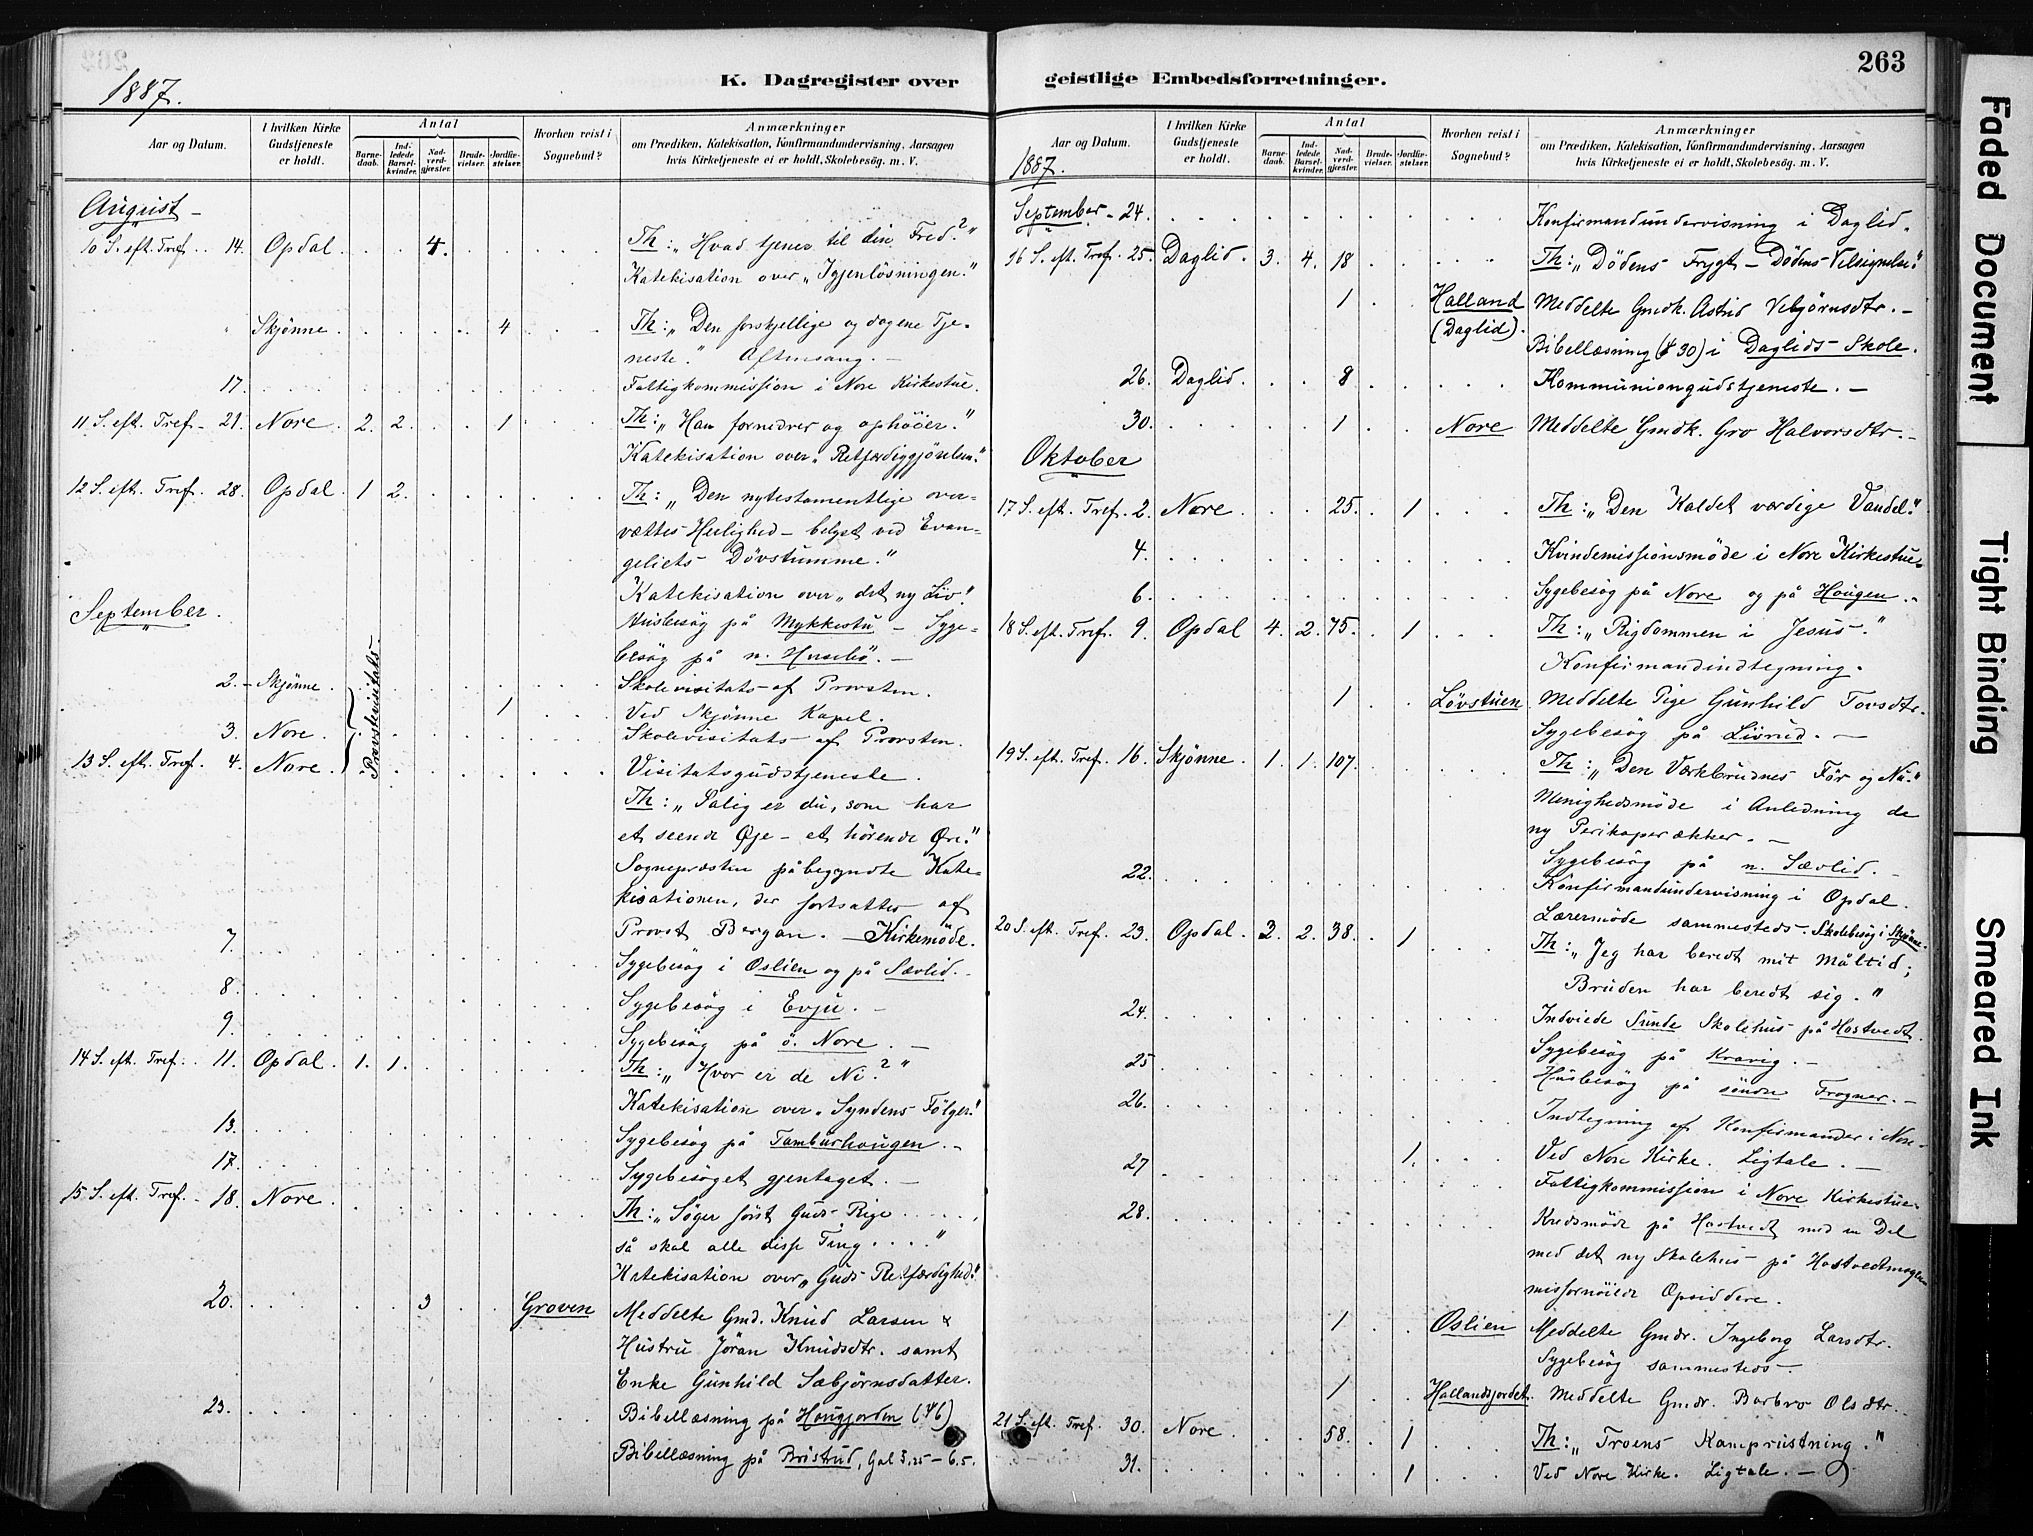 263
K. Dagregister over geistlige Embedsforretninger.
1887.
Aar og Datum.
I hvilken Kirke Gudstjeneste er holdt.
Antal
Barnedaab.
Indledede Barselkvinder.
Nadverdgjæster.
Brudevielser.
Jordfæstelser.
Hvorhen reist i Sognebud?
Anmærkninger
om Prædiken, Katekisation, Konfirmandundervisning, Aarsagen
hvis Kirketjeneste ei er holdt, Skolebesøg. m. V.
August
10 S. eft. Tref. 14. Opdal. 4. Th: „Hvad tjener til din Fred?"
Katekisation over „Igjenløsningen."
Skjønne. 4 Th: „Den forskjellige og dogene Tje-
neste." Aftensang. —
17. Fattigkommission i Nore Kirkestue.
11 S. eft. Tref. 21. Nore. 2. 2. 1 Th: „Han fornedrer og ophöier."
Katekisation over „Retfærdiggjörelsen."
12 S. eft. Tref. 28. Opdal. 1 2. Th: „Den nytestamentlige over-
vættes Herlighed — belyst ved Evan-
geliets Dövstumme."
Katekisation over „det ny Liv."
September.
Husbesøg på Mykkestu — Syge-
besøg på n.
2. Skjønne. Provstevisitats Skolevisitats af Provsten.
1 Ved Skjønne Kapel.
3. Nore. Skolevisitats af Provsten.
13 S. eft. Tref. 4. Nore. Visitatsgudstjeneste
Th: „Salig er du, som har
et seende Øje — et hörende Öre."
Sognepræsten påbegyndte Kate-
kisationen, der fortsattes af
Provst Bergan. — Kirkemöde.
7. Sygebesøg i Oslien og på Sævlid.
8. Sygebesøg i Evju. —
9. Sygebesøg på ö. Nore. —
14 S. eft. Tref. 11. Opdal. 1. 1. Th: „Hvor er de Ni?"
Katekisation over „Syndens Fölger."
13. Sygebesøg på Tamburhougen. —
17. Sygebesøget gjentaget. —
15 S. eft. Tref. 18. Nore. Th: „Søger först Guds Rige . . . . .
så skal alle disse Ting . . . ."
Katekisation over „Guds Retfærdighed."
20. 3 Groven Meddelte Gmd. Knud Larsen &
Hustru Jöran Knudsdtr. samt
Enke Gunhild Sæbjörnsdatter.
23. Bibellæsning på Hougjorden (46)
Bibellæsning på Bristrud, Gal 5,25 — 6,5.
Aar og Datum.
I hvilken Kirke Gudstjeneste er holdt.
Antal
Barnedaab.
Indledede Barselkvinder.
Nadverdgjæster.
Brudevielser.
Jordfæstelser.
Hvorhen reist i Sognebud?
Anmærkninger
om Prædiken, Katekisation, Konfirmandundervisning, Aarsagen
hvis Kirketjeneste ei er holdt, Skolebesøg. m. V.
1887.
September 24. Konfirmandundervisning i Daglid.
16 S. eft. Tref. 25. Daglid. 3. 4. 18 Th: „Dödens Frygt — Dödens Velsignelse."
1 Halland (Daglid). Meddelte Gmdk. Astrid Vebjörnsdtr. —
Bibellæsning (30) i Daglids Skole.
26. Daglid. 8 Kommuniongudstjeneste. —
30. 1 Nore Meddelte Gmdk. Gro Halvorsdtr. —
Oktober
17 S. eft. Tref. 2. Nore. 25. 1 Th: „Den Kaldet værdige Vandel."
4. Kvindemissionsmöde i Nore Kirkestue.
6. Sygebesøg på Nore og på Hougen.
18 S. eft. Tref. 9. Opdal 4. 2. 75. 1 Th: „Rigdommen i Jesus."
Konfirmandindtegning.
1 Lövstuen Meddelte Pige Gunhild Tovsdtr.
Sygebesøg på Livrud. —
19 S. eft. Tref. 16. Skjønne. 1. 1. 107. Th: „Den Værkbrudnes Før og Nu."
Menighedsmöde i Anledning de
ny Perikoperækker. —
Sygebesøg på n. Sævlid. —
22. Konfirmandundervisning i Opdal.
Lærermöde sammesteds. Skolebesøg i Skjønne.
20 S. eft. Tref. 23. Opdal. 2. 2. 38. 1 Th: „Jeg har beredt mit Måltid;
Bruden har beredt sig."
24. Indviede Sunde Skolehus på Hostvedt.
Sygebesøg på Kravig. —
25 Husbesøg på söndre Frogner. —
26. Indtegning af Konfirmander i Nore.
1. Ved Nore Kirke. Ligtale. —
27 Fattigkommission i Nore Kirkestue.
28. Kredsmöde på Hostvedt med en Del
med det ny Skolehus på Hostvedtmogen
misfornöiede Opsiddere.
1 Oslien Meddelte Gmdr. Ingeborg Larsdtr.
Sygebesøg sammesteds —
1 Hallandsjordet. Meddelte Gmdr. Barbro Olsdtr. —
21 S. eft. Tref. 30. Nore. 58. 1 Th: „Troens Kamprustning."
31. 1 Ved Nore Kirke. Ligtale. —
Faded Document
Tight Binding
Smeared Ink